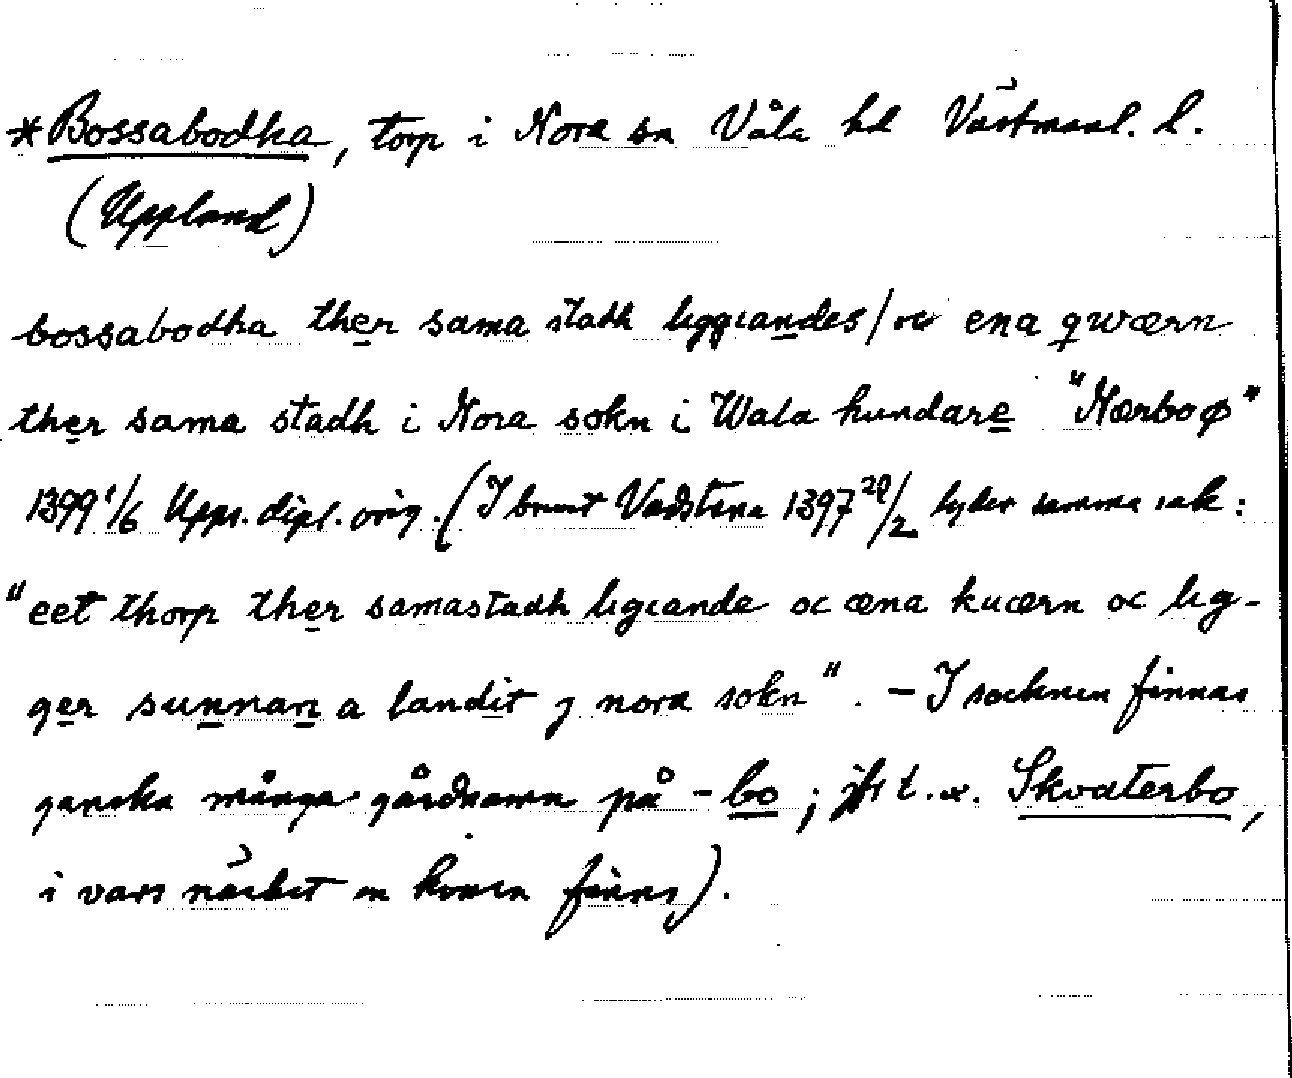 *Bossabodha, torp i Nora sn Våla hd Västmanl. l.
(Uppland)
bossabodha ther sama stadh liggiandes / oc ena qwærn
ther sama stadh i Nora sokn i Wala hundare "Nærboø"
1399 1/6 Upps. dipl. orig. (I brevet Vadstena 1397 28/2 lyder samma sak:
"eet thorp ther samastadh ligiande oc æna kuærn oc lig-
ger sunnan a landit j nora sokn". – I socknen finnas
ganska många gårdnamn på -bo; jfr t.ex. Skvaterbo,
i vars närhet en kvarn finns).